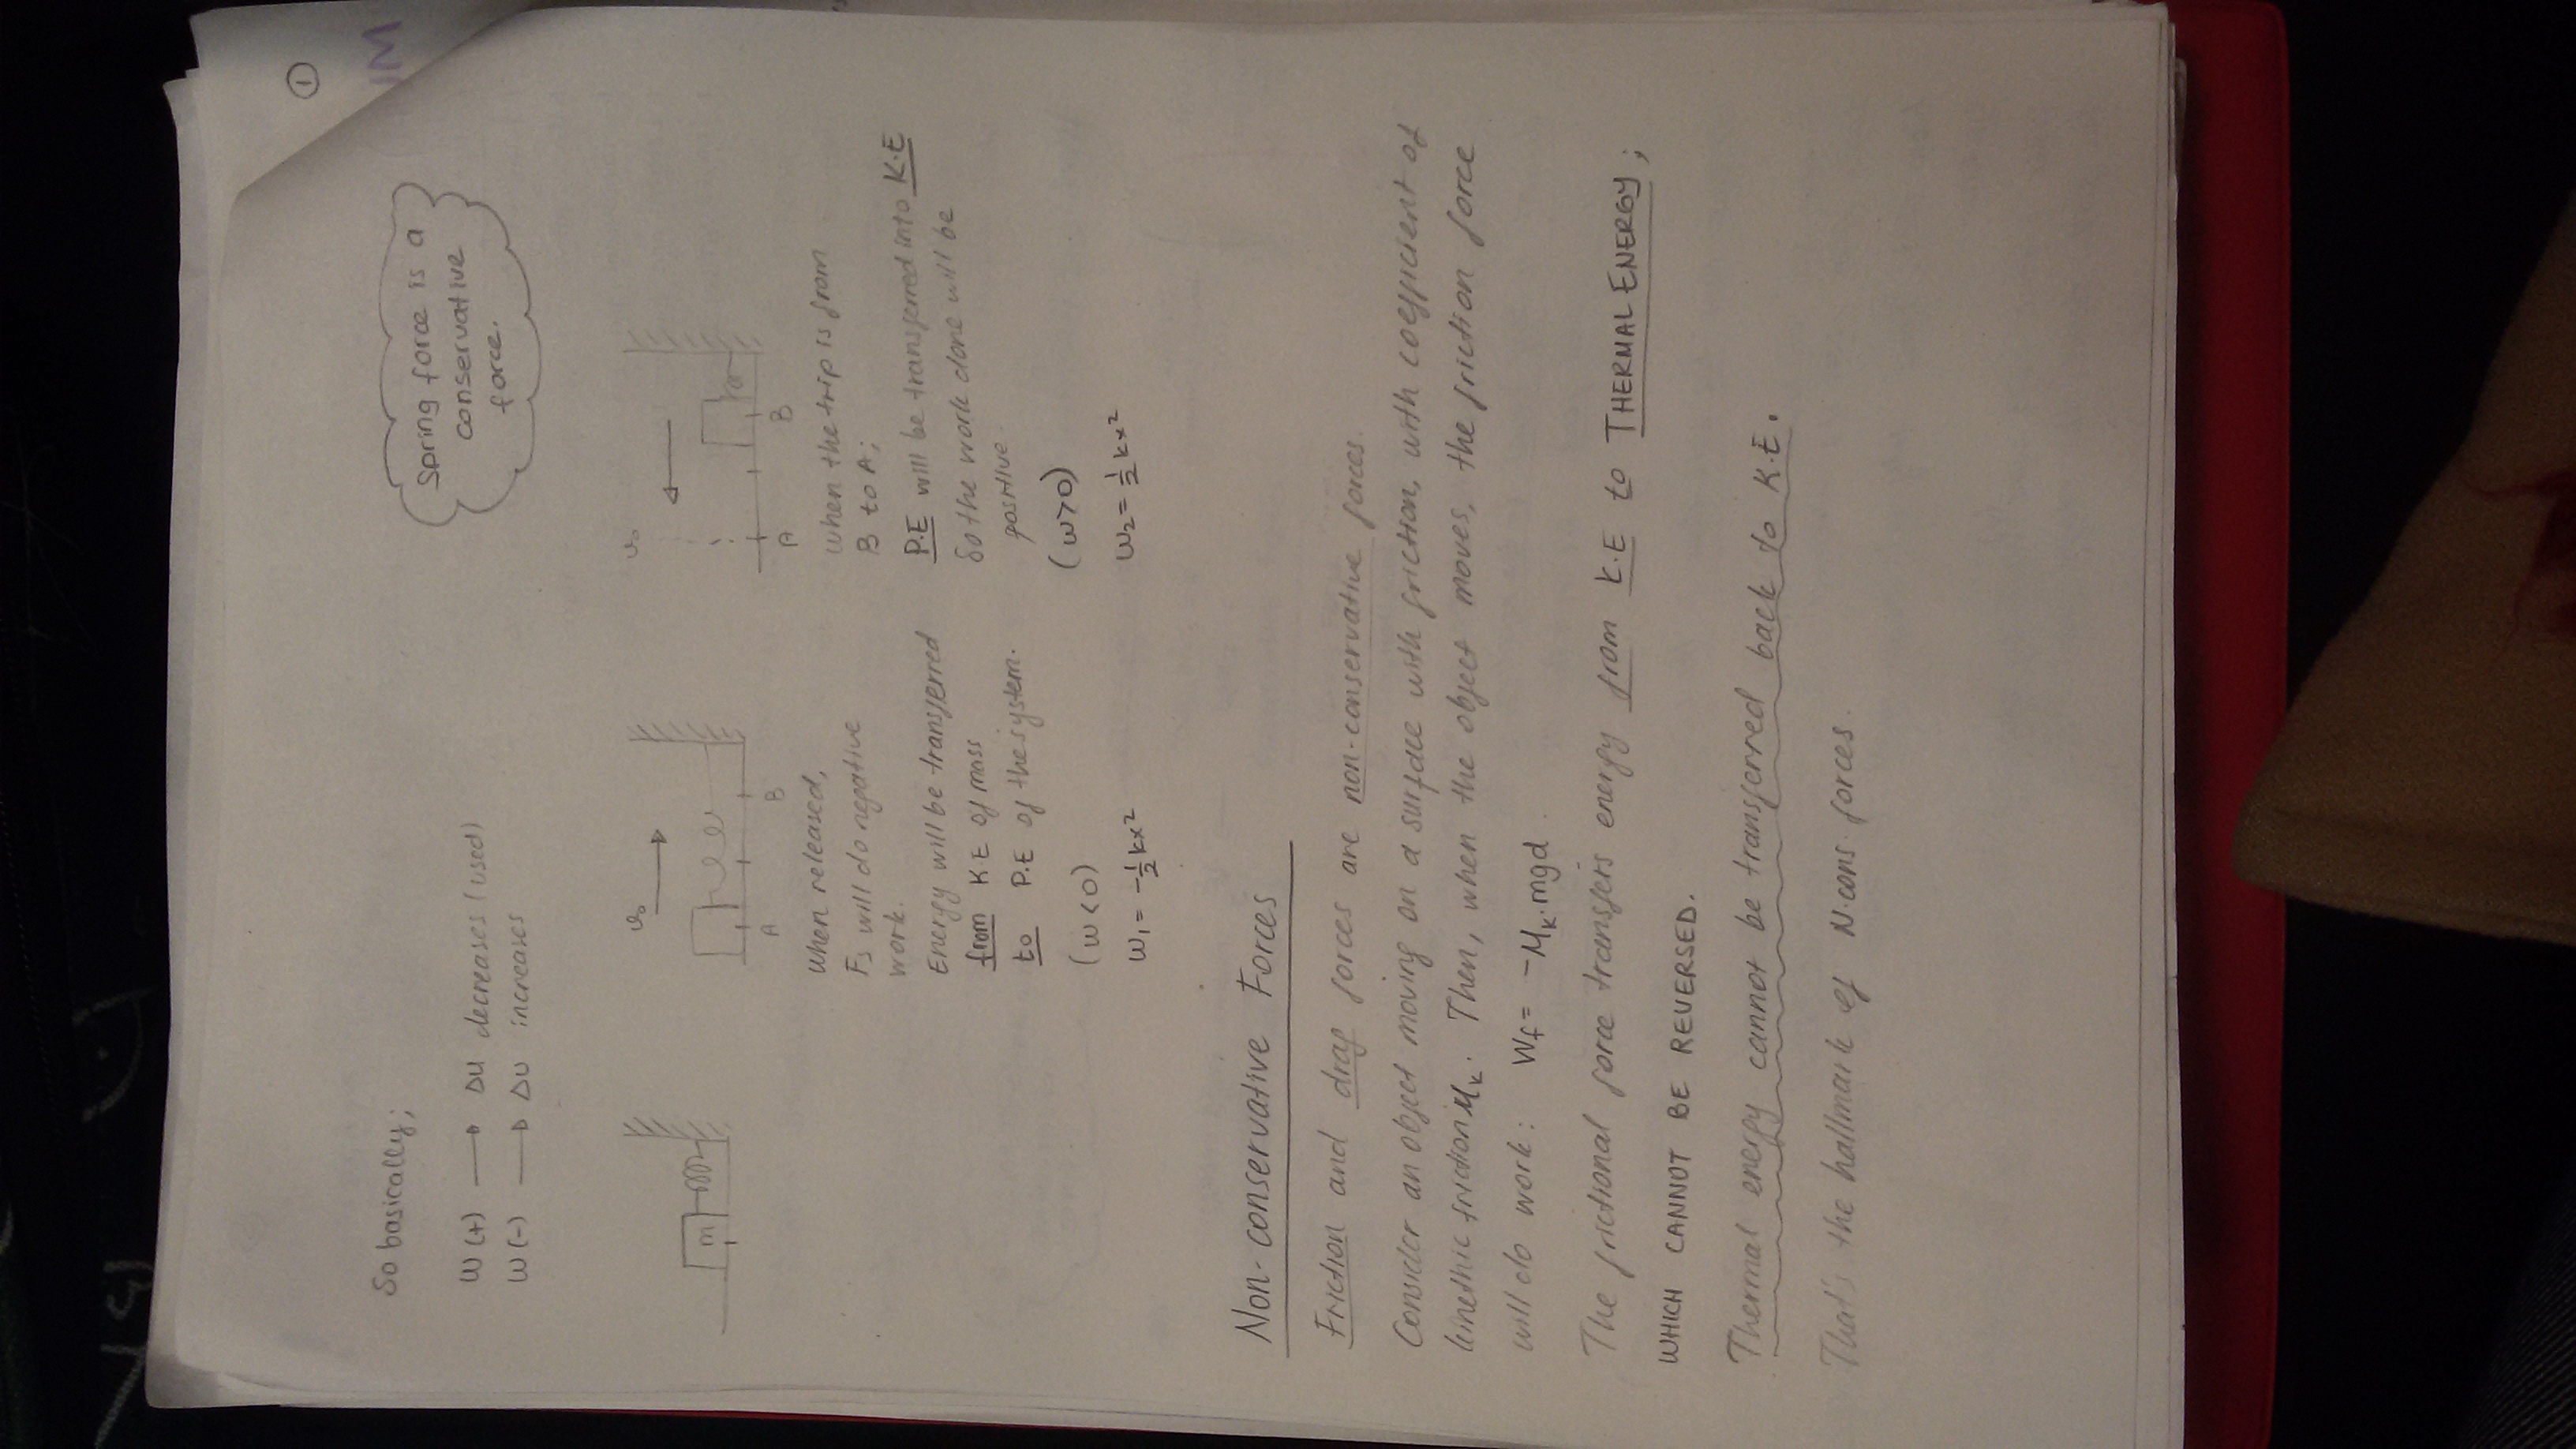 ①
So basically;
Spring force is a
conservative
force.
W (+) → ΔU decreases (used)
W (-) → ΔU increases
m
v₀
A
B
v₀
A
B
When released,
Fs will do negative
work.
Energy will be transferred
from K.E of mass
to P.E of the system.
(w<0)
W₁= -½kx²
when the trip is from
B to A;
P.E will be transferred into K.E
So the work done will be
positive.
(w>0)
W₂= ½kx²
Non-conservative Forces
Friction and drag forces are non-conservative forces.
Consider an object moving on a surface with friction, with coefficient of
kinethic friction μk. Then, when the object moves, the friction force
will do work: Wf= -μk.mgd.
The frictional force transfers energy from K.E to THERMAL ENERGY;
WHICH CANNOT BE REVERSED.
Thermal energy cannot be transferred back to K.E.
That's the hallmark of N.cons. forces.